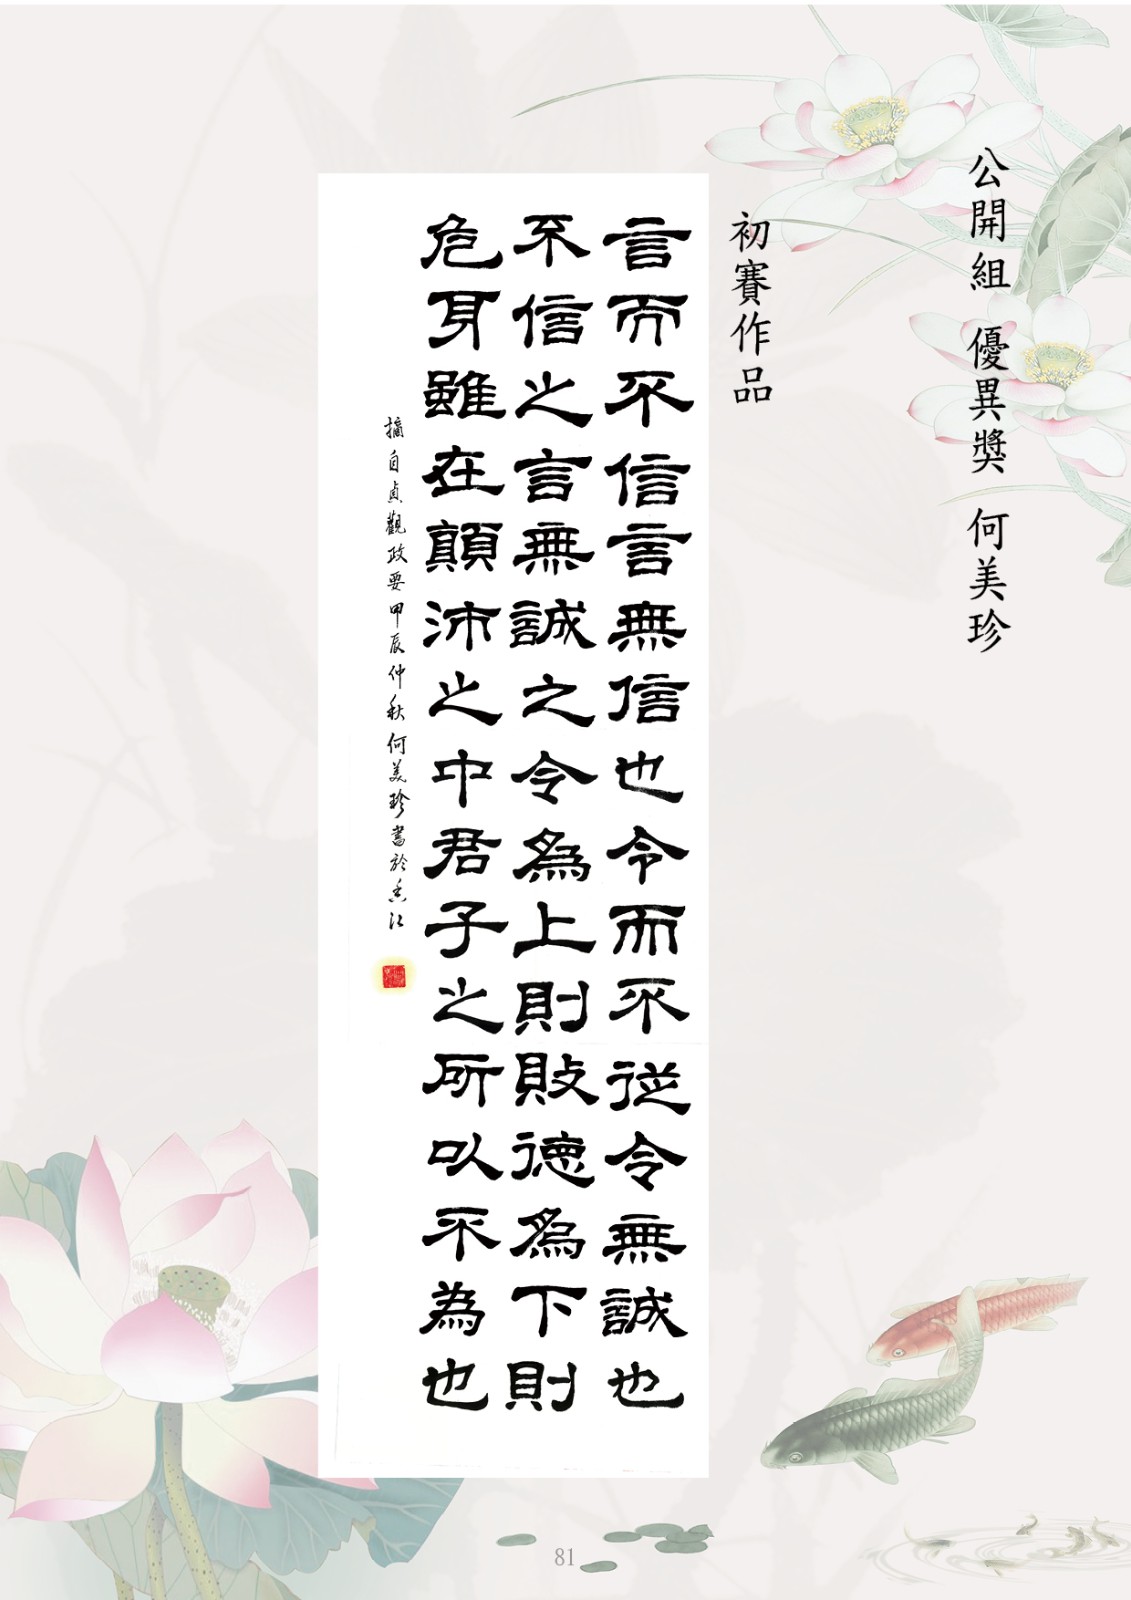 公開組 優異獎 何美珍
初賽作品
言而不信言無信也令而不從令無誠也
不信之言無誠之令為上則敗德為下則
危身雖在顛沛之中君子之所以不為也
摘自貞觀政要甲辰仲秋何美珍書於香江
81